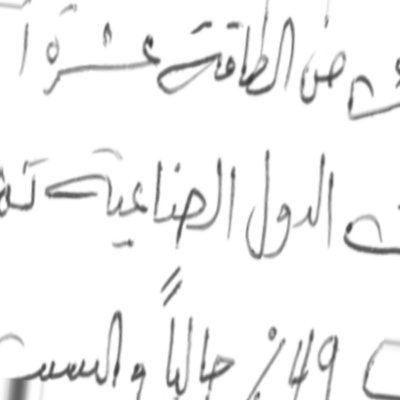 من الطاقة عشرة
الدول الصناعية
49٪ حالياً والسبب